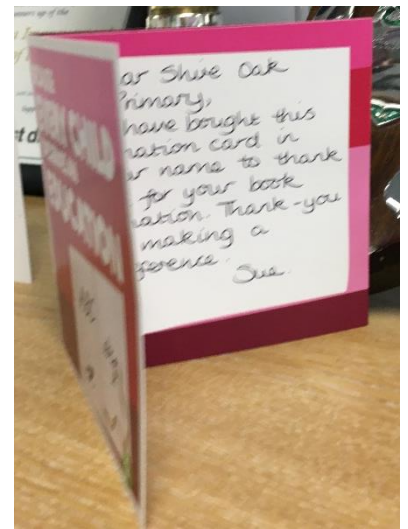 ar Shire Oak
rimary,
have bought this
nation card in
ur name to thank
for your book
nation. Thank-you
making a
ference.
Sue.
CHILD
EDUCATION